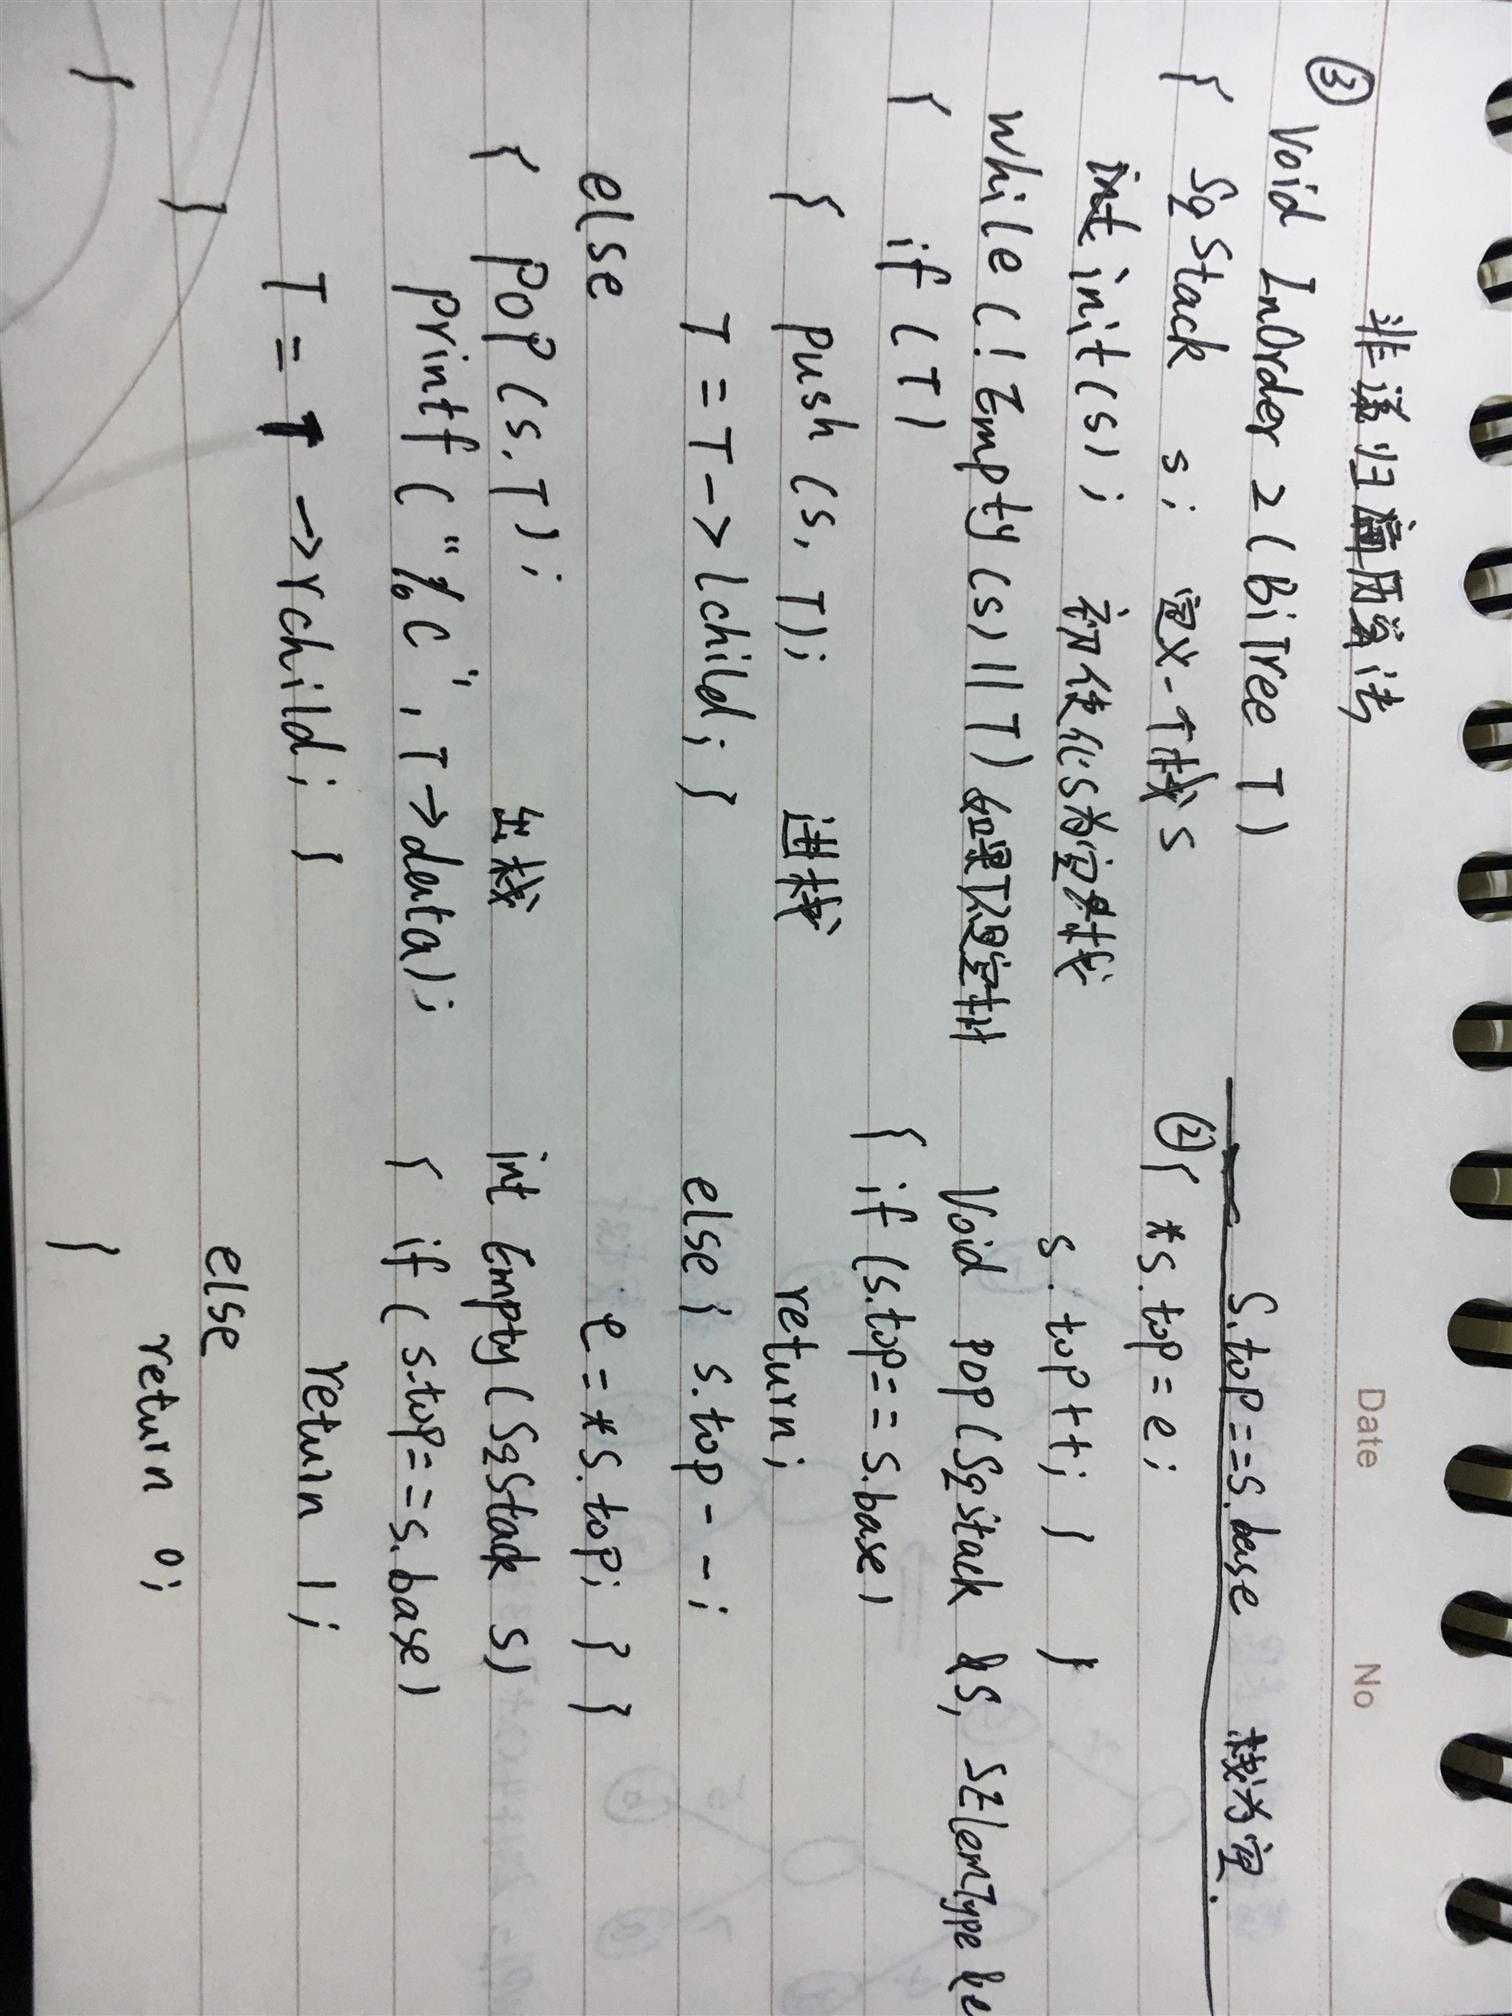 Date No
非递归遍历算法
③ Void InOrder 2 (BiTree T)
{ SqStack s; 定义一个栈s
init(s); 初使化s为空栈
while (! Empty(s) || T) 如果T不是空树
{ if (T)
{ push (s, T); 进栈
T = T -> lchild; }
else
{ POP (s, T); 出栈
printf ( "%c", T->data);
T = T -> rchild; }
}
}
S.top==S.base 栈为空.
② { *s.top = e;
s.top++; } }
Void POP (SqStack &S, SElemType &e
{ if (s.top== s.base)
return;
else { s.top--;
e = *s.top; } }
int Empty (SqStack s)
{ if (s.top==s.base)
return 1;
else
return 0;
}